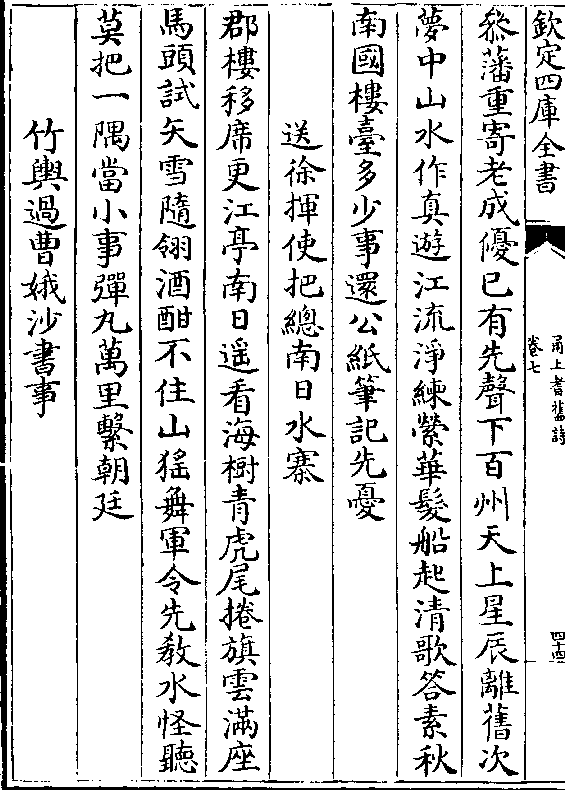 欽定四庫全書
甬上耆舊詩
卷七
四十四
叅藩重寄老成優已有先聲下百州天上星辰離舊次
夢中山水作真遊江流淨練縈華髮船起清歌答素秋
南國樓臺多少事還公紙筆記先憂
送徐揮使把總南日水寨
郡樓移席更江亭南日遥看海樹青虎尾捲旗雲滿座
馬頭試矢雪隨翎酒酣不住山猺舞軍令先教水怪聽
莫把一隅當小事彈丸萬里繫朝廷
竹輿過曹娥沙書事